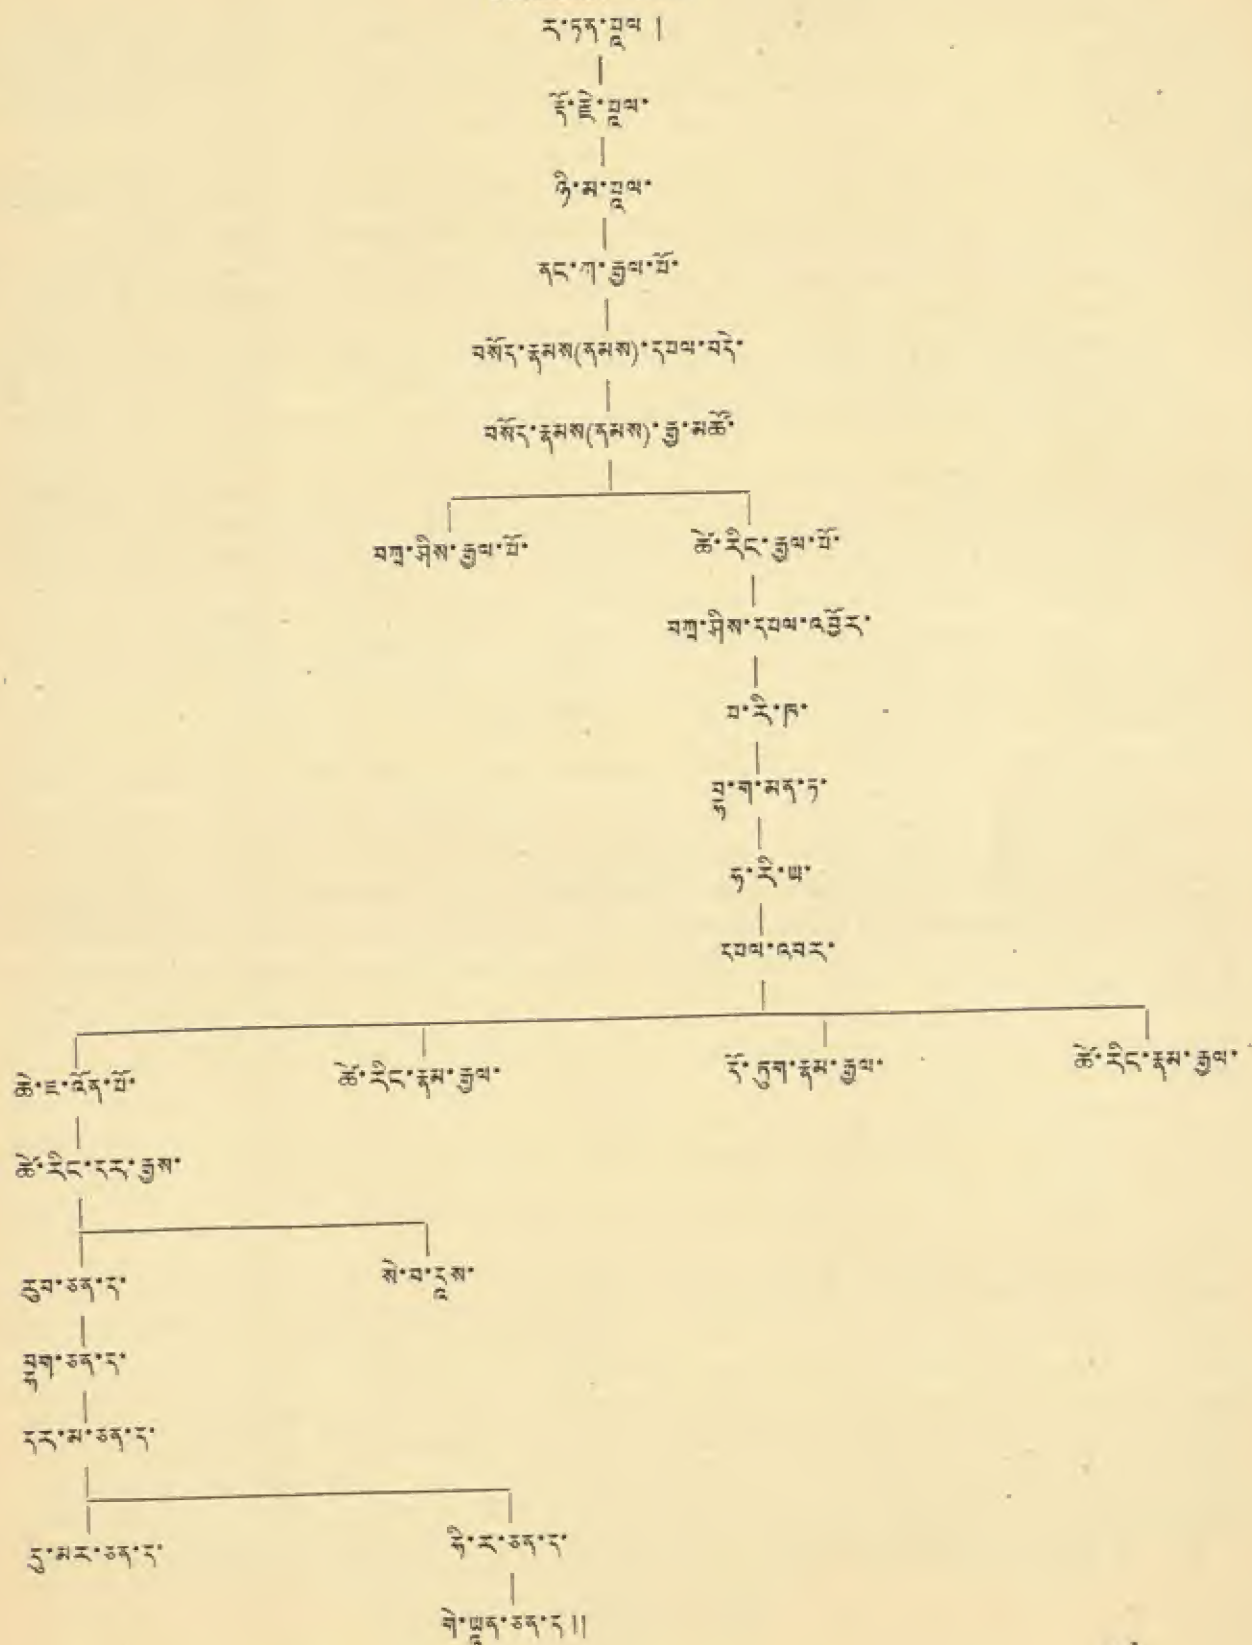 ར་ཏན་པཱལ །
དོ་རྗེ་པཱལ་
ཉི་མ་པཱལ་
ནང་ཀ་རྒྱལ་པོ་
བསོད་རྣམས(ནམས)་དཔལ་བདེ་
བསོད་རྣམས(ནམས)་རྒྱ་མཚོ་
བཀྲ་ཤིས་རྒྱལ་པོ་ ཚེ་རིང་རྒྱལ་པོ་
བཀྲ་ཤིས་དཔལ་འབྱོར་
པ་རི་ཁ་
ག་མན་ཏ་
ཧ་རི་ཡ་
དཔལ་འབར་
ཚེ་ཇ་འོན་པོ་ ཚེ་རིང་རྣམ་རྒྱལ་ དོ་ཏུག་རྣམ་རྒྱལ་ ཚེ་རིང་རྣམ་རྒྱལ་
ཚེ་རིང་དར་རྒྱས་
རུབ་ཅན་ད་ སེ་བ་དཱས་
ཅན་ད་
དར་མ་ཅན་ད་
དུ་མར་ཅན་ད་ ཧི་ར་ཅན་ད་
གེ་ཡཱན་ཅན་ད །།